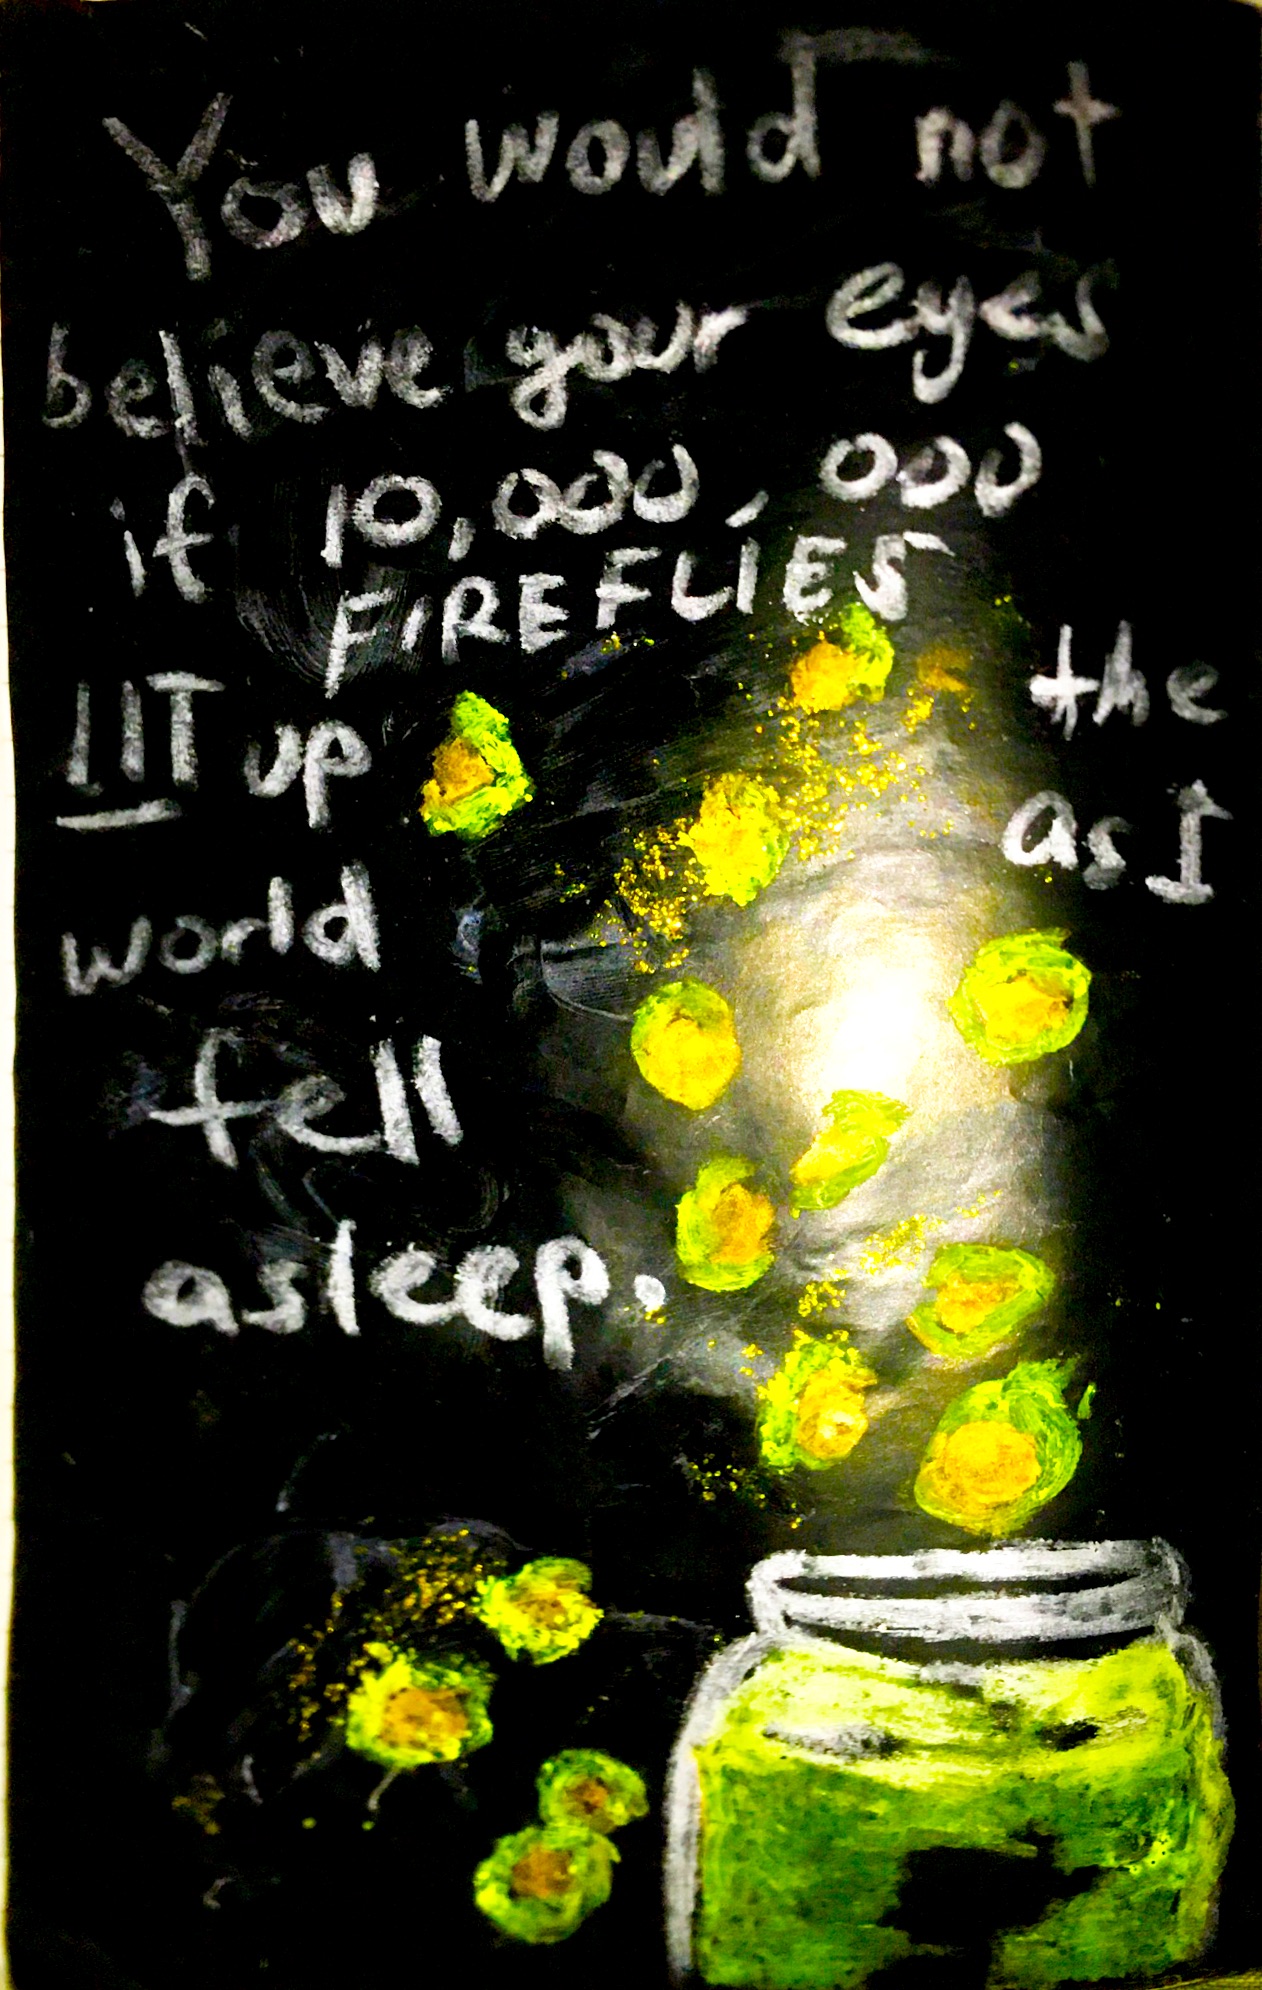 You would not
believe your eyes
if 10,000,000
FIREFLIES
LIT up the
world as I
fell
asleep.